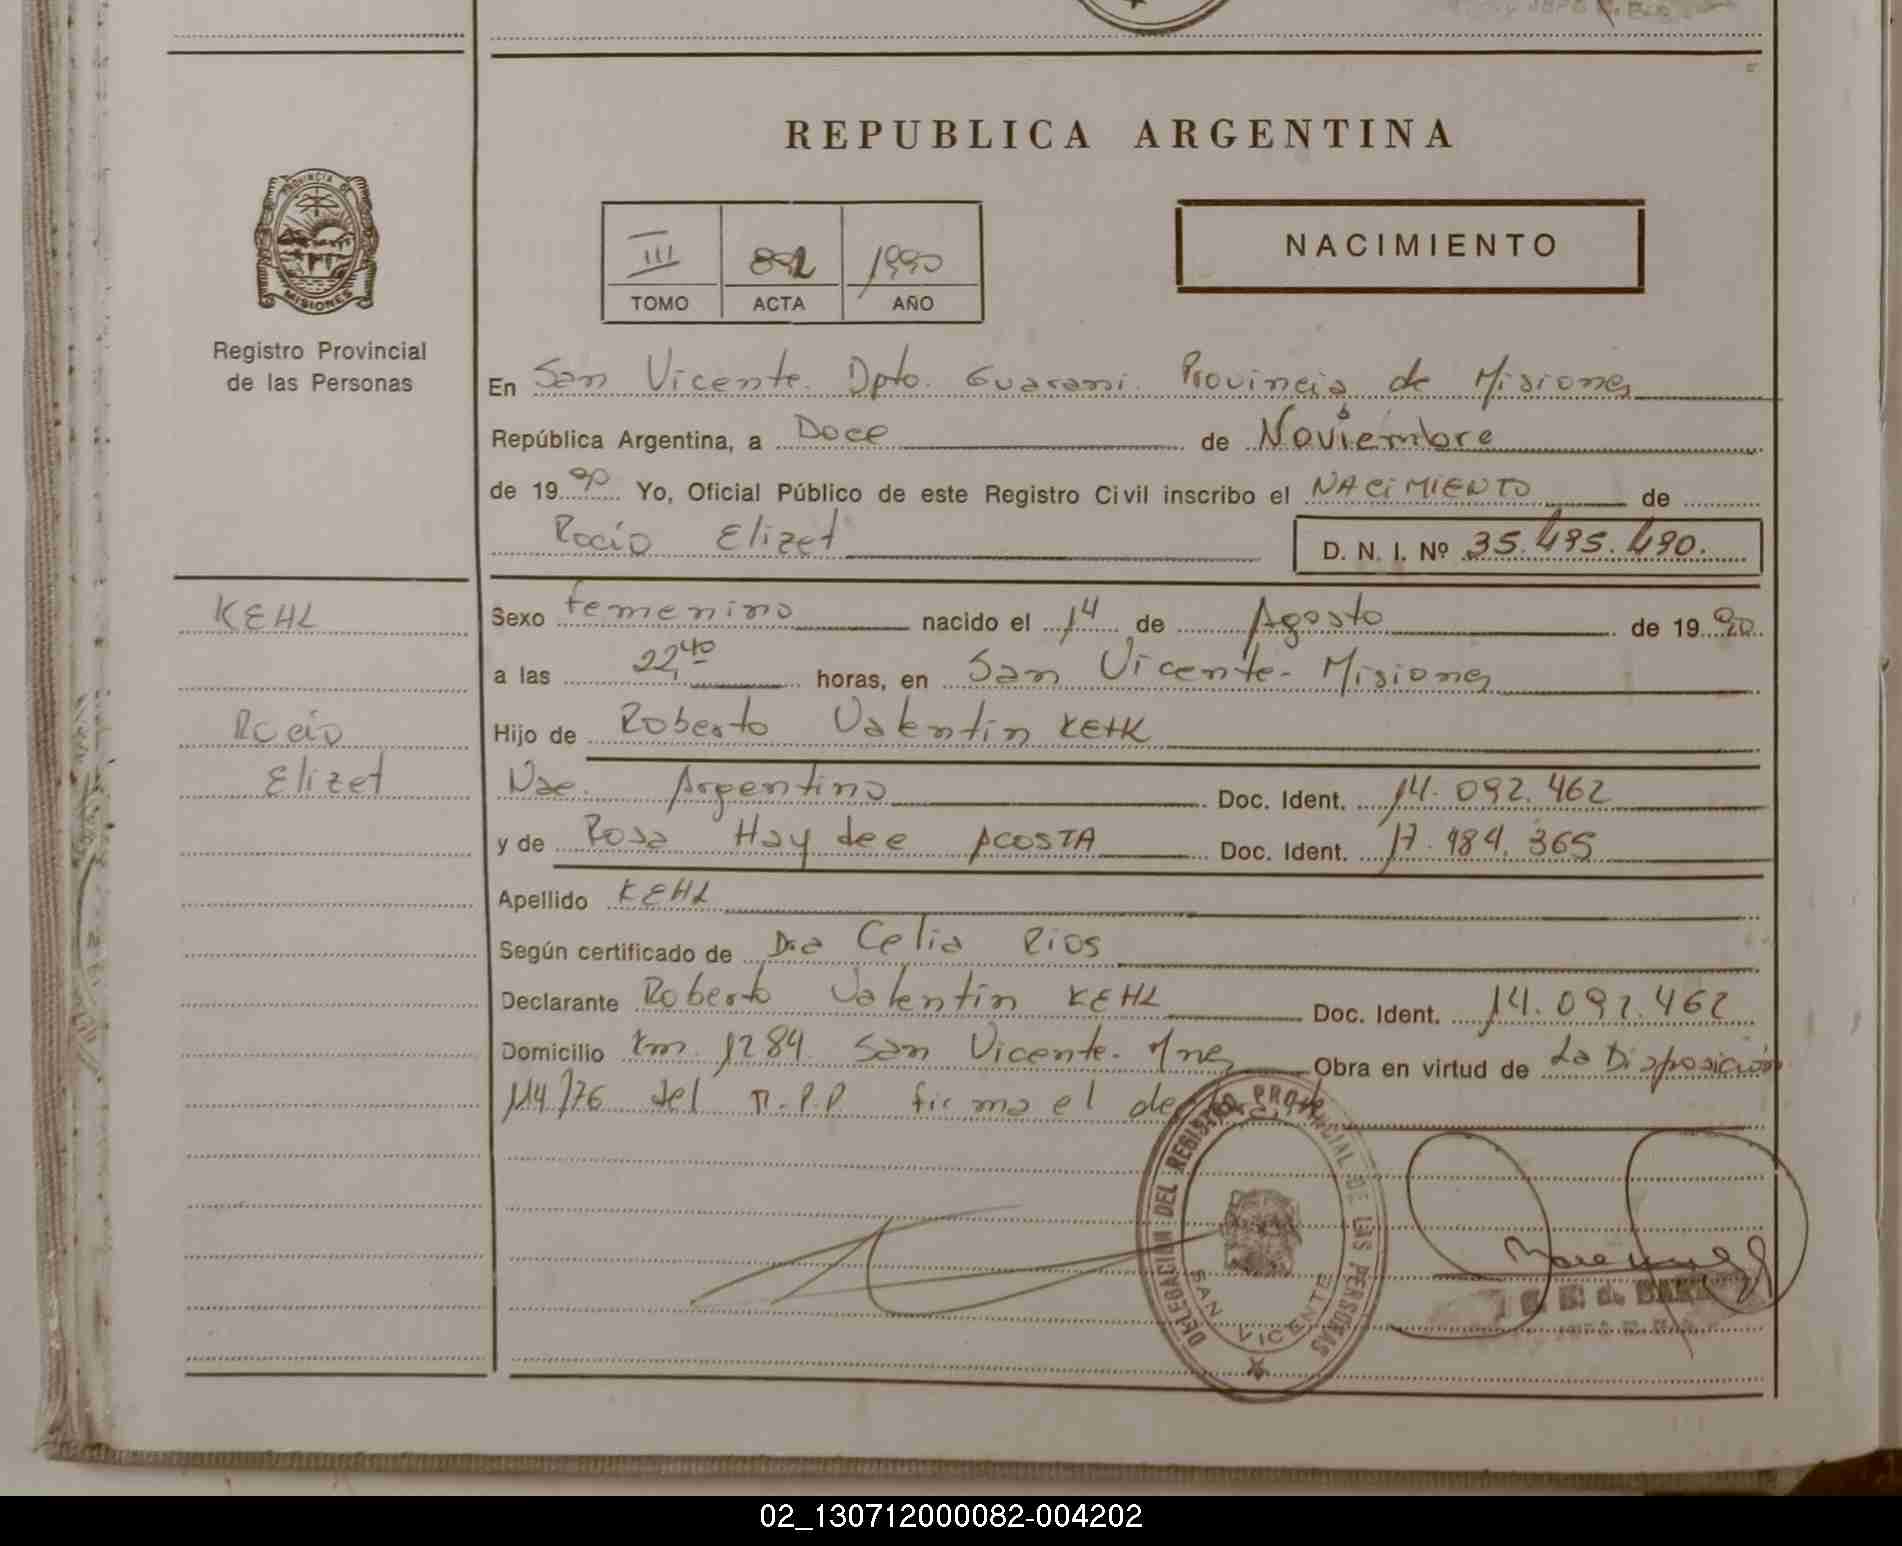 REPUBLICA ARGENTINA
PROVINCIA DE
MISIONES
Registro Provincial
de las Personas
III 892 1990
TOMO ACTA AÑO
NACIMIENTO
En San Vicente. Dpto. Guarani. Provincia de Misiones
República Argentina, a Doce de Noviembre
de 1990 Yo, Oficial Público de este Registro Civil inscribo el NACIMIENTO de
Rocío Elizet
D. N. I. Nº 35.495.490.
KEHL
Rocío
Elizet
Sexo femenino nacido el 14 de Agosto de 1990.
a las 22,40 horas, en San Vicente - Misiones
Hijo de Roberto Valentin KEHL
Nac. Argentino Doc. Ident. 14.092.462
y de Rosa Haydee ACOSTA Doc. Ident. 17.984.365
Apellido KEHL
Según certificado de Dra Celia Rios
Declarante Roberto Valentin KEHL Doc. Ident. 14.092.462
Domicilio Km. 1284. San Vicente. Mnes Obra en virtud de La Disposición
114/76 del R.P.P firma el declarante
DELEGACION DEL REGISTRO PROVINCIAL DE LAS PERSONAS
SAN VICENTE
02_130712000082-004202